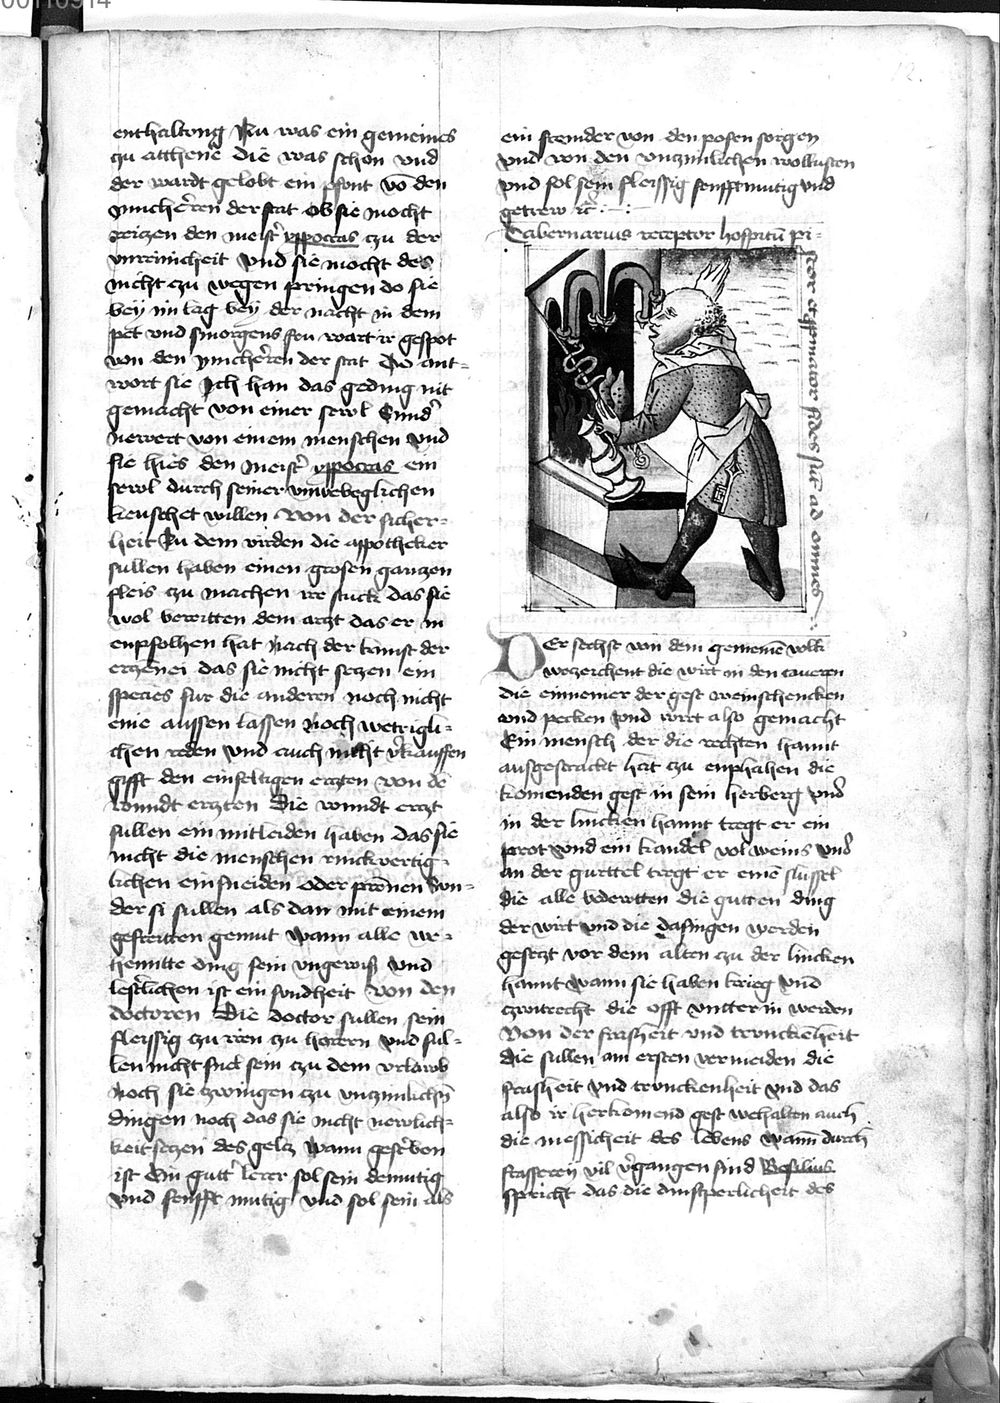 00110914
12.
enthaltong Nu was ein gemeines
zu atthene die was schon vnd
der wardt gelobt ein pfunt vo den
den der stat Ob sie mocht
reitzen den meist yppocras czu der
vnreinicheit Vnd sie mocht des
nicht czu wegen pringen do sie
bey im lag bey der nacht in dem
pet vnd smorgens fru wart ir gespot
von den der stat Do ant-
wort sie Ich han das geding nit
gemacht von einer sewl Sund
newert von einem menschen vnd
sie hies den meist yppocras ein
sewl durch seiner vnwegeglichen
keuschet willen Von der sicher-
heit Zu dem virden die appotheker
sullen haben einen grosen gantzen
fleis czu machen ire stuck das sie
wol bereitten dem arczt das er in
enpfolhen hat Nach der kunst der
erczenei das sie nicht seczen ein
species fur die anderen noch nicht
eine aussen lassen Noch wetrigli-
chen reden vnd auch nicht vkauffen
gifft den einfeltigen erczten von de
wundt erczten Die wundt erczt
sullen ein mitleiden haben das sie
nicht die menschen ruckwertig-
lichen einsneiden oder prennen Sun-
der si sullen als dan mit einem
gemut Wann alle
ding sein vngewiß Vnd
ist ein sundheit Von den
doctoren Die doctor sullen sein
fleissig czu czu horern vnd sul-
len nicht snel sein czu dem vrlawb
Noch sie czwingen czu vnczimlichen
dingen noch das sie nicht
keit seczen des gelcz Wann
ist Ein gutt lerer sol sein demutig
vnd senfft mutig vnd sol sein als
ein fremder von den posen sorgen
vnd von den vnczimlichen wollusten
vnd sol sein fleissig senfftmutig vnd
getrew
Tabernarius receptor hospitu pi-
ad omnes
DEr sechst von dem gemeine volk
weczeichent die wirt in den tauern
die einnemer der gest weinschencken
vnd pecken vnd wirt also gemacht
Ein mensch der die rechten hannt
ausgestrackt hat czu enphahen die
komenden gest in sein herberg vnd
in der lincken hannt tregt er ein
prot vnd ein kandel vol weins vnd
an der gurttel tregt er eine slussel
die alle bedewtten die gutten ding
der wirt vnd die dasingen werden
geseczt vor dem alten czu der lincken
hannt wann sie haben krieg vnd
czwitrecht die offt vntter in werden
Von der frasheit vnd trunckenheit
die sullen am ersten vermeiden die
frasheit vnd trunckenheit vnd das
also ir herkomend gest wehalten auch
die messicheit des lebens wann durch
frasserey vil vgangen sind Basilius
spricht das die dinstperlicheit des